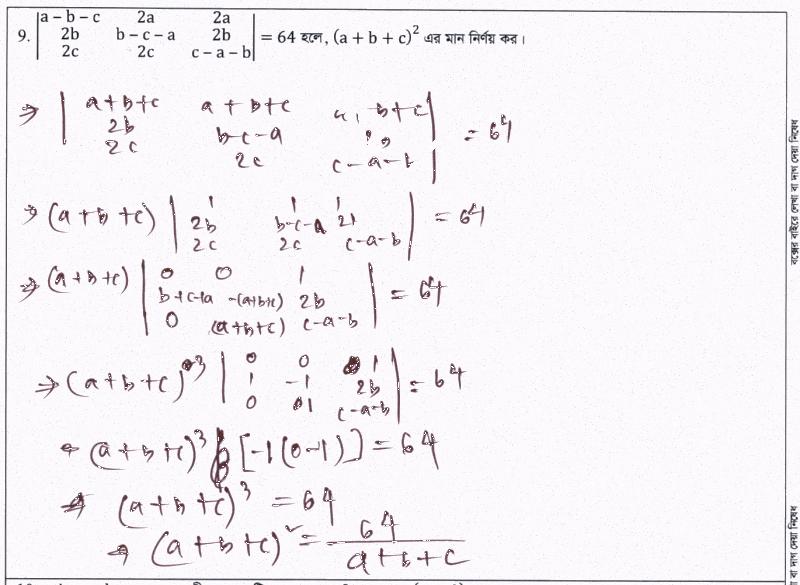 9. |a − b − c 2a 2a|
|2b b − c − a 2b| = 64 হলে, (a + b + c)² এর মান নির্ণয় কর।
|2c 2c c − a − b|
⇒ | a+b+c a+b+c a+b+c |
| 2b b-c-a 2b | = 64
| 2c 2c c-a-b |
⇒ (a+b+c) | 1 1 1 |
| 2b b-c-a 2b | = 64
| 2c 2c c-a-b |
⇒ (a+b+c) | 0 0 1 |
| b+c+a -(a+b+c) 2b | = 64
| 0 (a+b+c) c-a-b |
⇒ (a+b+c)³ | 0 0 1 |
| 1 -1 2b | = 64
| 0 1 c-a-b |
⇒ (a+b+c)³ [-1(0-1)] = 64
⇒ (a+b+c)³ = 64
⇒ (a+b+c)² = 64 / a+b+c
বক্সের বাইরে লেখা বা দাগ দেয়া নিষেধ
বা দাগ দেয়া নিষেধ